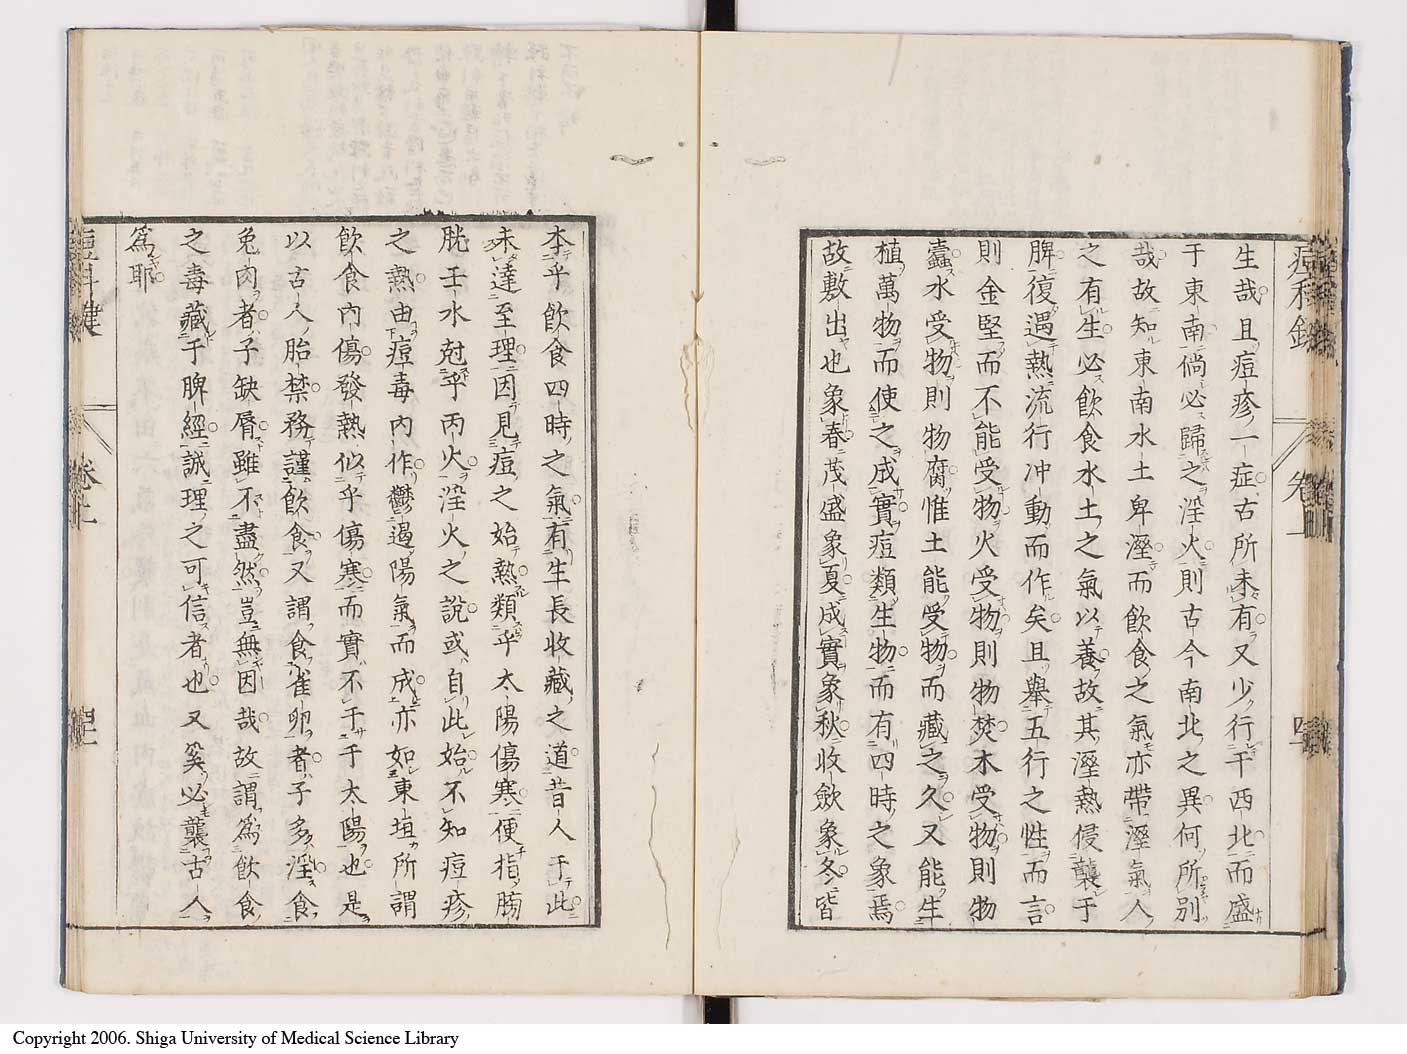 生哉且痘疹一症古所未有又少行于西北而盛
于東南倘必歸之淫火則古今南北之異何所別
哉故知東南水土卑溼而飮食之氣亦帶溼氣人
之有生必飮食水土之氣以養故其溼熱侵襲于
脾復遇熱流行冲動而作矣且舉五行之性而言
則金堅而不能受物火受物則物焚木受物則物
蠹水受物則物腐惟土能受物而藏之久又能生
植萬物而使之成實痘類生物而有四時之象焉
故敷出也象春茂盛象夏成實象秋收斂象冬皆
本乎飮食四時之氣有生長收藏之道昔人于此
未達至理因見痘之始熱類乎太陽傷寒便指膀
胱壬水尅乎丙火淫火之說或自此始不知痘疹
之熱由痘毒内作鬱遏陽氣而成亦如東垣所謂
飮食内傷發熱似乎傷寒而實不干于太陽也是
以古人胎禁務謹飮食又謂食雀卵者子多淫食
兔肉者子缺脣雖不盡然豈無因哉故謂爲飮食
之毒藏于脾經誠理之可信者也又奚必襲古人
爲耶
痘科鍵
卷上
Copyright 2006. Shiga University of Medical Science Library